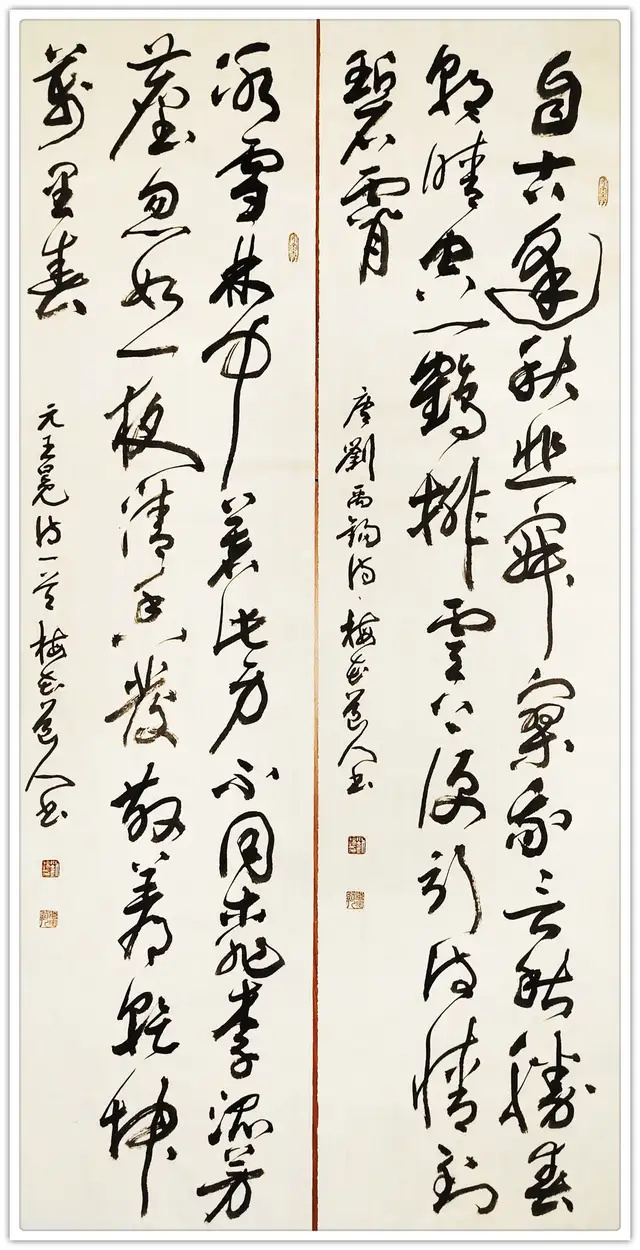 自古逢秋悲寂寥我言秋勝春
朝晴空一鶴排雲上便引詩情到
碧霄
唐劉禹錫詩 梅花道人书
冰雪林中著此身不同桃李混芳
塵忽如一夜清香發散着乾坤
萬里春
元王冕詩一首 梅花道人书